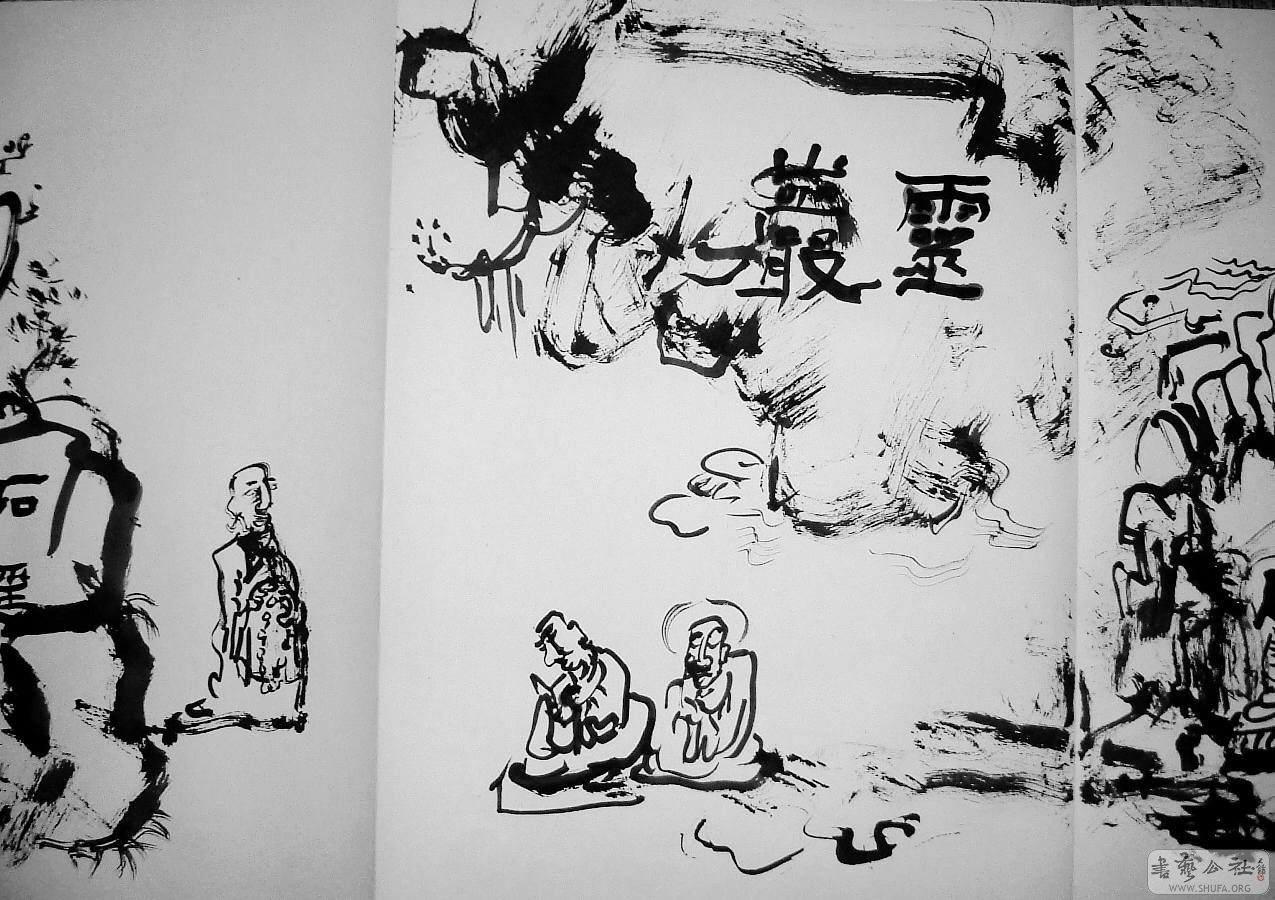 靈巖
石
書藝公社
WWW.SHUFA.ORG